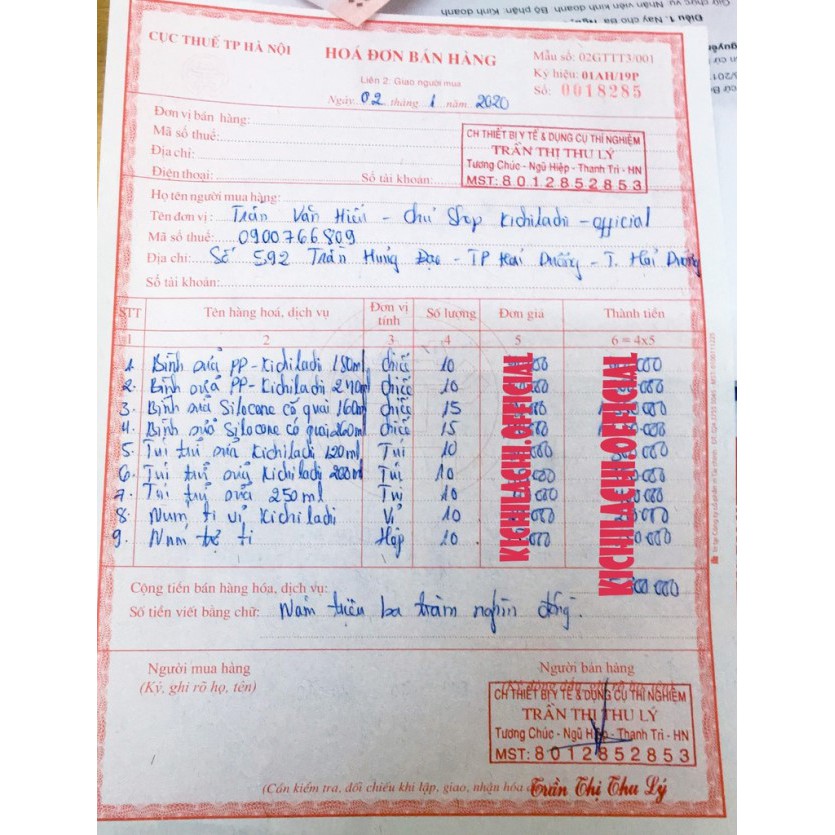 CỤC THUẾ TP HÀ NỘI
HOÁ ĐƠN BÁN HÀNG
Mẫu số: 02GTTT3/001
Liên 2: Giao người mua
Ký hiệu: 01AH/19P
Ngày 02 tháng 1 năm 2020
Số: 0018285
Đơn vị bán hàng:
Mã số thuế:
Địa chỉ:
Điện thoại: Số tài khoản:
CH THIẾT BỊ Y TẾ & DỤNG CỤ THÍ NGHIỆM
TRẦN THỊ THU LÝ
Tương Chúc - Ngũ Hiệp - Thanh Trì - HN
MST: 8012852853
Họ tên người mua hàng:
Tên đơn vị: Trần Văn Hiến - Chủ Shop Kichilachi - official
Mã số thuế: 0900766809
Địa chỉ: Số 592 Trần Hưng Đạo - TP Hải Dương - T. Hải Dương
Số tài khoản:
STT Tên hàng hoá, dịch vụ Đơn vị tính Số lượng Đơn giá Thành tiền
1 2 3 4 5 6 = 4x5
1. Bình sữa PP - Kichilachi 180ml chiếc 10
2. Bình sữa PP - Kichilachi 240ml chiếc 10
3. Bình sữa Silocone có quai 160ml chiếc 15
4. Bình sữa Silocone có quai 260ml chiếc 15
5. Túi trữ sữa Kichilachi 120ml Túi 10
6. Túi trữ sữa Kichilachi 200ml Túi 10
7. Túi trữ sữa 250ml Túi 10
8. Num ti vỉ Kichilachi Vỉ 10
9. Hộp
KICHILACHI.OFFICIAL
KICHILACHI.OFFICIAL
Cộng tiền bán hàng hóa, dịch vụ:
Số tiền viết bằng chữ: Năm triệu ba trăm nghìn đồng.
Người mua hàng
(Ký, ghi rõ họ, tên)
Người bán hàng
CH THIẾT BỊ Y TẾ & DỤNG CỤ THÍ NGHIỆM
TRẦN THỊ THU LÝ
Tương Chúc - Ngũ Hiệp - Thanh Trì - HN
MST: 8012852853
(Cần kiểm tra, đối chiếu khi lập, giao, nhận hóa
Trần Thị Thu Lý